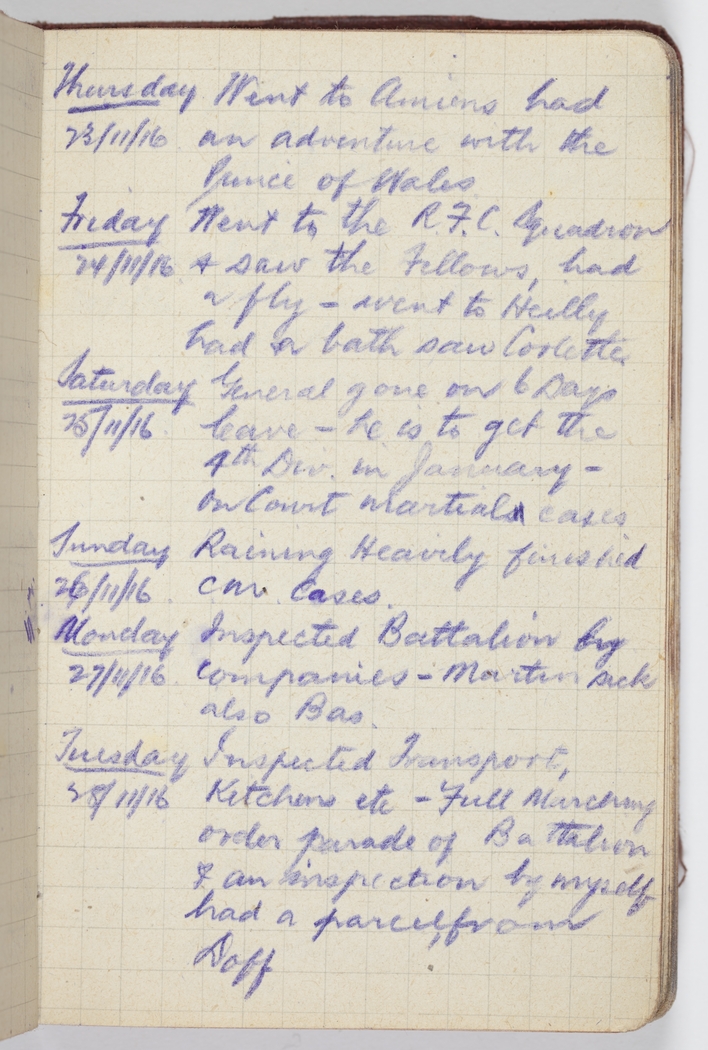 Thursday Went to Amiens had
23/11/16 an adventure with the
Prince of Wales
Friday Went to the R.F.C. Squadron
24/11/16 & saw the Fellows, had
a fly - went to Heilly
had a bath saw Corlette
Saturday General gone on 6 Days
25/11/16 leave - he is to get the
4th Div. in January -
on Court martial cases
Sunday Raining Heavily finished
26/11/16 C.M. Cases.
Monday Inspected Battalion by
27/11/16 companies - Martin sick
also Bas.
Tuesday Inspected Transport,
28/11/16 Kitchens etc - Full Marching
order parade of Battalion
& an inspection by myself
had a parcel from
Doff